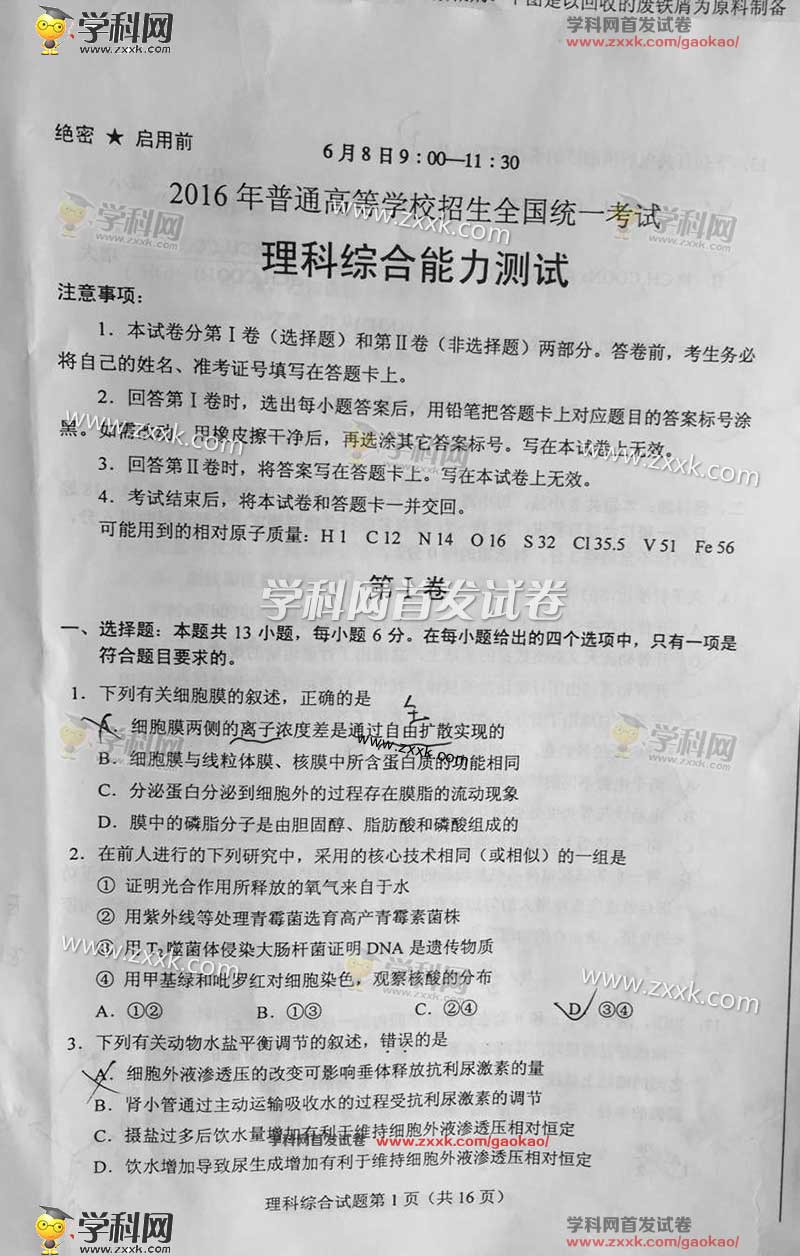 下图是以回收的废铁屑为原料制备
学科网
www.zxxk.com
学科网首发试卷
www.zxxk.com/gaokao/
绝密 ★ 启用前
6月8日9:00—11:30
2016年普通高等学校招生全国统一考试
理科综合能力测试
注意事项：
1．本试卷分第Ⅰ卷（选择题）和第Ⅱ卷（非选择题）两部分。答卷前，考生务必
将自己的姓名、准考证号填写在答题卡上。
2．回答第Ⅰ卷时，选出每小题答案后，用铅笔把答题卡上对应题目的答案标号涂
黑。如需改动，用橡皮擦干净后，再选涂其它答案标号。写在本试卷上无效。
3．回答第Ⅱ卷时，将答案写在答题卡上。写在本试卷上无效。
4．考试结束后，将本试卷和答题卡一并交回。
可能用到的相对原子质量：H 1 C 12 N 14 O 16 S 32 Cl 35.5 V 51 Fe 56
第Ⅰ卷
学科网首发试卷
一、选择题：本题共13小题，每小题6分。在每小题给出的四个选项中，只有一项是
符合题目要求的。
1．下列有关细胞膜的叙述，正确的是
A．细胞膜两侧的离子浓度差是通过自由扩散实现的
www.zxxk.com
B．细胞膜与线粒体膜、核膜中所含蛋白质的功能相同
C．分泌蛋白分泌到细胞外的过程存在膜脂的流动现象
D．膜中的磷脂分子是由胆固醇、脂肪酸和磷酸组成的
2．在前人进行的下列研究中，采用的核心技术相同（或相似）的一组是
① 证明光合作用所释放的氧气来自于水
② 用紫外线等处理青霉菌选育高产青霉素菌株
③ 用T₂噬菌体侵染大肠杆菌证明DNA是遗传物质
④ 用甲基绿和吡罗红对细胞染色，观察核酸的分布
A．①② B．①③ C．②④ D．③④
3．下列有关动物水盐平衡调节的叙述，错误的是
A．细胞外液渗透压的改变可影响垂体释放抗利尿激素的量
B．肾小管通过主动运输吸收水的过程受抗利尿激素的调节
C．摄盐过多后饮水量增加有利于维持细胞外液渗透压相对恒定
学科网首发试卷 www.zxxk.com/gaokao/
D．饮水增加导致尿生成增加有利于维持细胞外液渗透压相对恒定
理科综合试题第1页（共16页）
学科网
www.zxxk.com
学科网首发试卷
www.zxxk.com/gaokao/